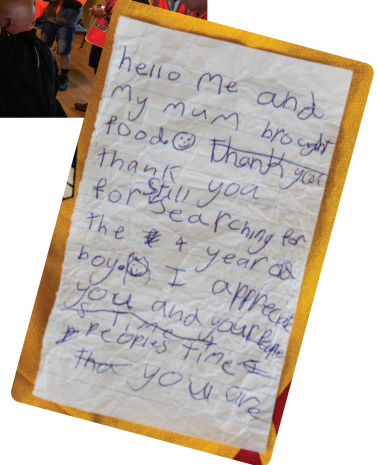 hello me and
my mum brought
food☺ thank you
thank you
for still searching for
the 4 year old
boy. I appreciate
you and your people
peoples time
that you are